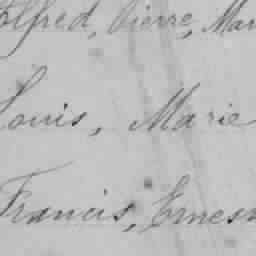 Alfred, Pierre, Mar
Louis, Marie
Francis, Ernes